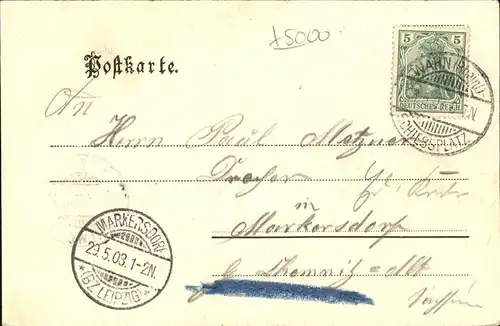 +5000
Postkarte.
5 5
DEUTSCHES REICH
WAHN
SCHIESSPLATZ
An
Herrn Paul Metzner
Drecher
in
Markersdorf
b/ Chemnitz=
Sachsen
MARKERSDORF
29.5.03. 1-2N.
*(BZ. LEIPZIG)*